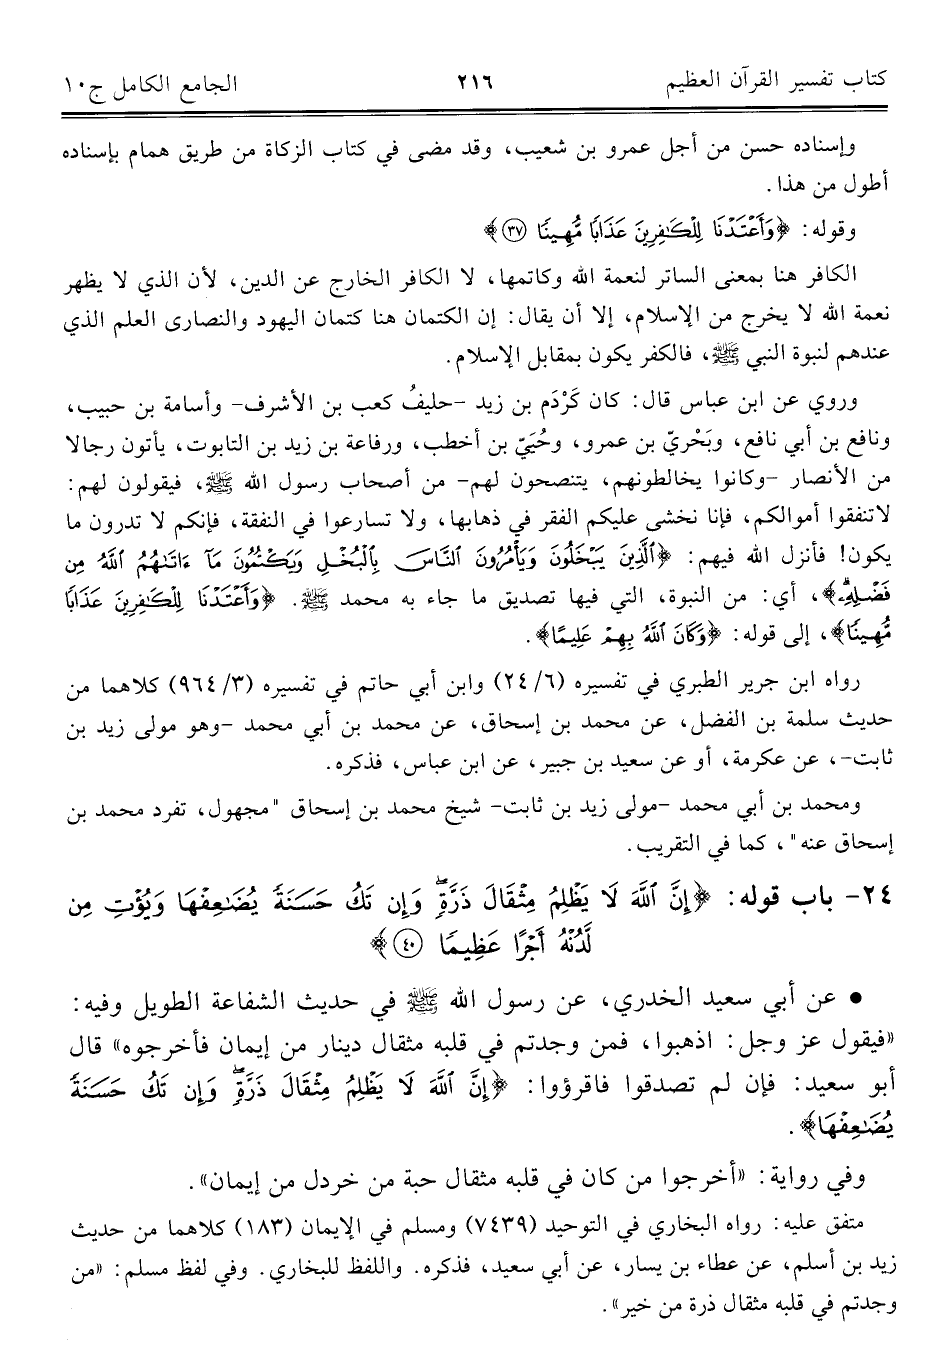 كتاب تفسير القرآن العظيم ٢١٦ الجامع الكامل ج١٠
وإسناده حسن من أجل عمرو بن شعيب، وقد مضى في كتاب الزكاة من طريق همام بإسناده
أطول من هذا.
وقوله: ﴿وَأَعْتَدْنَا لِلْكَٰفِرِينَ عَذَابًا مُّهِينًا ٣٧﴾
الكافر هنا بمعنى الساتر لنعمة الله وكاتمها، لا الكافر الخارج عن الدين، لأن الذي لا يظهر
نعمة الله لا يخرج من الإسلام، إلا أن يقال: إن الكتمان هنا كتمان اليهود والنصارى العلم الذي
عندهم لنبوة النبي ﷺ، فالكفر يكون بمقابل الإسلام.
وروي عن ابن عباس قال: كان كَرْدَم بن زيد -حليفُ كعب بن الأشرف- وأسامة بن حبيب،
ونافع بن أبي نافع، وبَحْريّ بن عمرو، وحُيَيّ بن أخطب، ورفاعة بن زيد بن التابوت، يأتون رجالا
من الأنصار -وكانوا يخالطونهم، يتنصحون لهم- من أصحاب رسول الله ﷺ، فيقولون لهم:
لاتنفقوا أموالكم، فإنا نخشى عليكم الفقر في ذهابها، ولا تسارعوا في النفقة، فإنكم لا تدرون ما
يكون! فأنزل الله فيهم: ﴿ٱلَّذِينَ يَبْخَلُونَ وَيَأْمُرُونَ ٱلنَّاسَ بِٱلْبُخْلِ وَيَكْتُمُونَ مَآ ءَاتَىٰهُمُ ٱللَّهُ مِن
فَضْلِهِۦۗ﴾، أي: من النبوة، التي فيها تصديق ما جاء به محمد ﷺ. ﴿وَأَعْتَدْنَا لِلْكَٰفِرِينَ عَذَابًا
مُّهِينًا﴾، إلى قوله: ﴿وَكَانَ ٱللَّهُ بِهِمْ عَلِيمًا﴾.
رواه ابن جرير الطبري في تفسيره (٢٤/٦) وابن أبي حاتم في تفسيره (٩٦٤/٣) كلاهما من
حديث سلمة بن الفضل، عن محمد بن إسحاق، عن محمد بن أبي محمد -وهو مولى زيد بن
ثابت-، عن عكرمة، أو عن سعيد بن جبير، عن ابن عباس، فذكره.
ومحمد بن أبي محمد -مولى زيد بن ثابت- شيخ محمد بن إسحاق "مجهول، تفرد محمد بن
إسحاق عنه"، كما في التقريب.
٢٤- باب قوله: ﴿إِنَّ ٱللَّهَ لَا يَظْلِمُ مِثْقَالَ ذَرَّةٍۖ وَإِن تَكُ حَسَنَةً يُضَٰعِفْهَا وَيُؤْتِ مِن
لَّدُنْهُ أَجْرًا عَظِيمًا ٤٠﴾
• عن أبي سعيد الخدري، عن رسول الله ﷺ في حديث الشفاعة الطويل وفيه:
«فيقول عز وجل: اذهبوا، فمن وجدتم في قلبه مثقال دينار من إيمان فأخرجوه» قال
أبو سعيد: فإن لم تصدقوا فاقرؤوا: ﴿إِنَّ ٱللَّهَ لَا يَظْلِمُ مِثْقَالَ ذَرَّةٍۖ وَإِن تَكُ حَسَنَةً
يُضَٰعِفْهَا﴾.
وفي رواية: «أخرجوا من كان في قلبه مثقال حبة من خردل من إيمان».
متفق عليه: رواه البخاري في التوحيد (٧٤٣٩) ومسلم في الإيمان (١٨٣) كلاهما من حديث
زيد بن أسلم، عن عطاء بن يسار، عن أبي سعيد، فذكره. واللفظ للبخاري. وفي لفظ مسلم: «من
وجدتم في قلبه مثقال ذرة من خير».